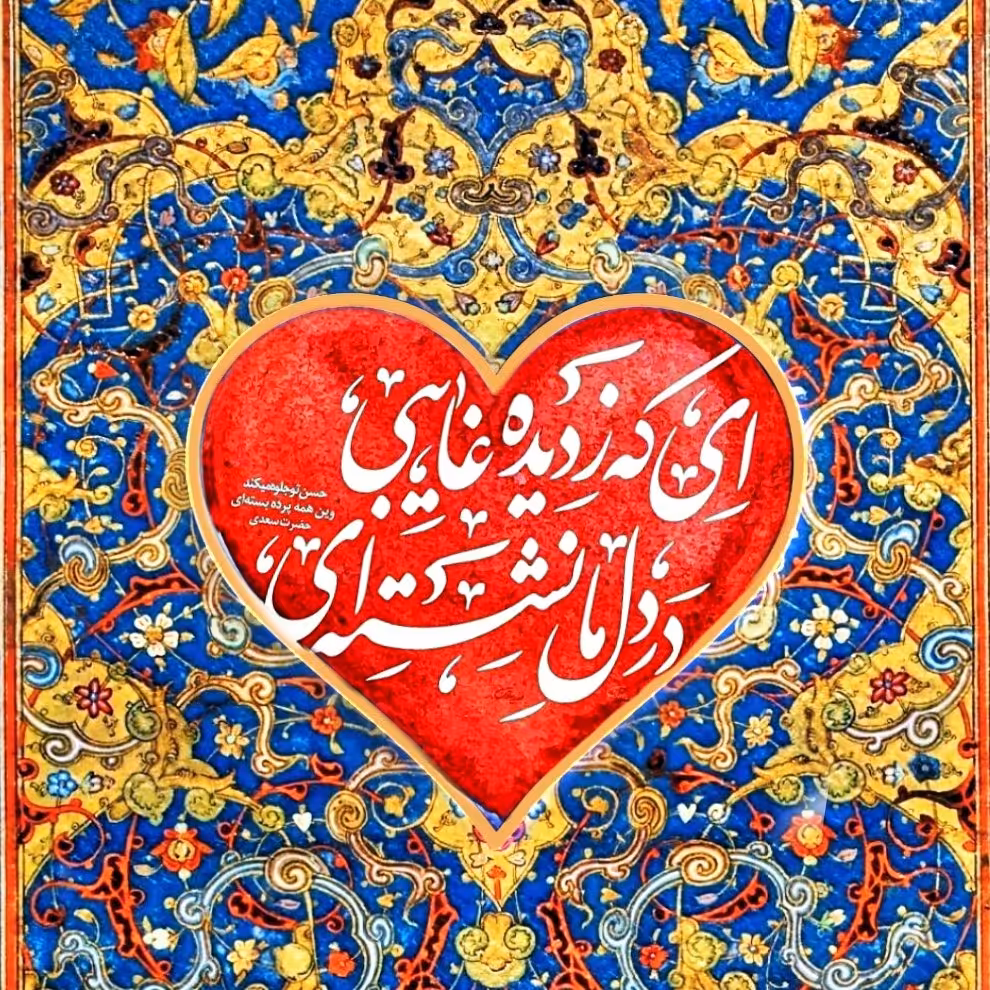 ای که ز دیده غایبی
در دل ما نشسته‌ای
حسن تو جلوه میکند
وین همه پرده بسته‌ای
حضرت سعدی